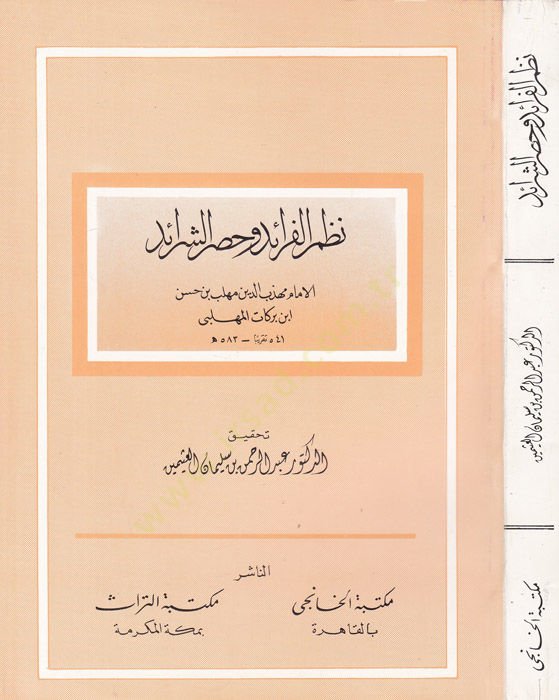 نظم الفرائد وحصر الشرائد
الإمام مهذب الدين مهلب بن حسن
ابن بركات المهلبي
٥٤١ تقريبًا - ٥٨٣ ه
تحقيق
الدكتور عبد الرحمن بن سليمان العثيمين
الناشر
مكتبة الخانجى
بالقاهرة
مكتبة التراث
بمكة المكرمة
نظم الفرائد وحصر الشرائد
الدكتور عبد الرحمن بن سليمان العثيمين
مكتبة الخانجى